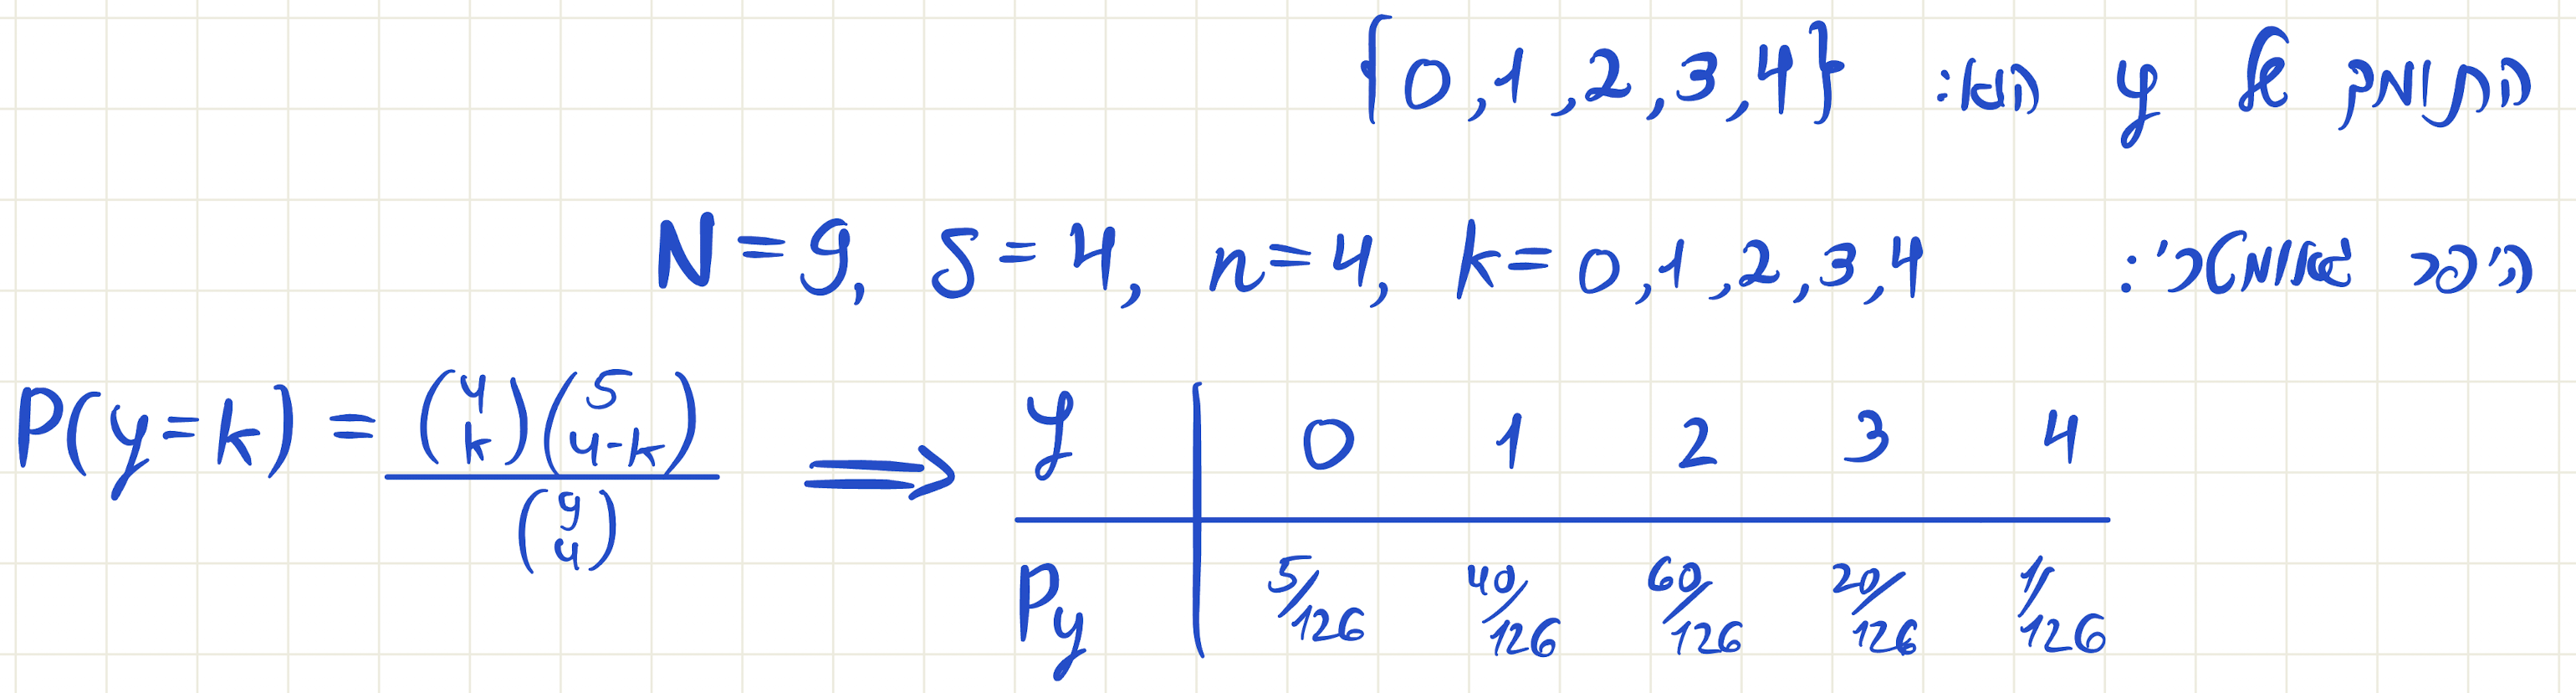 התומך של y הוא: {0,1,2,3,4}
היפר גאומטרי: N=9, S=4, n=4, k=0,1,2,3,4
P(y=k) = \frac{\binom{4}{k}\binom{5}{4-k}}{\binom{9}{4}} ⟹
y | 0 1 2 3 4
Py | 5/126 40/126 60/126 20/126 1/126